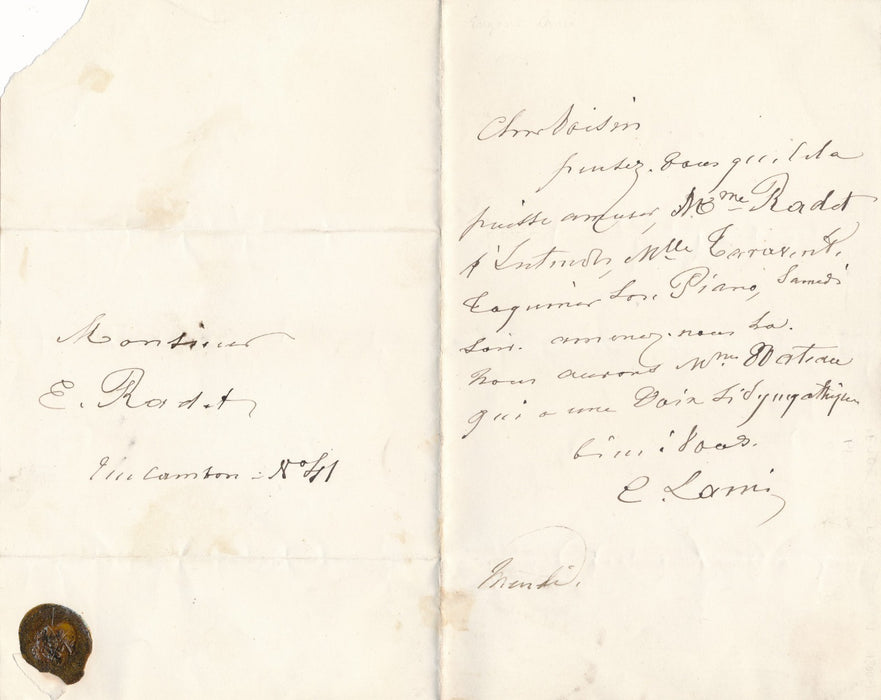 Monsieur
E. Radet
Rue Cambon = No 41
Cher Voisin
pensez-vous qu'il
puisse amuser, Mme Radet
d'Entendre, Mlle
Taquiner Son Piano, Samedi
Soir. amenez-nous La.
nous aurons Mme
qui a une Voix Si Sympathique
bien à Vous.
E. Lami